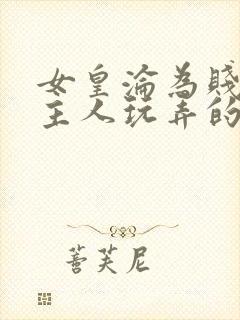 女皇淪為賤
主人玩弄的
菩芙尼